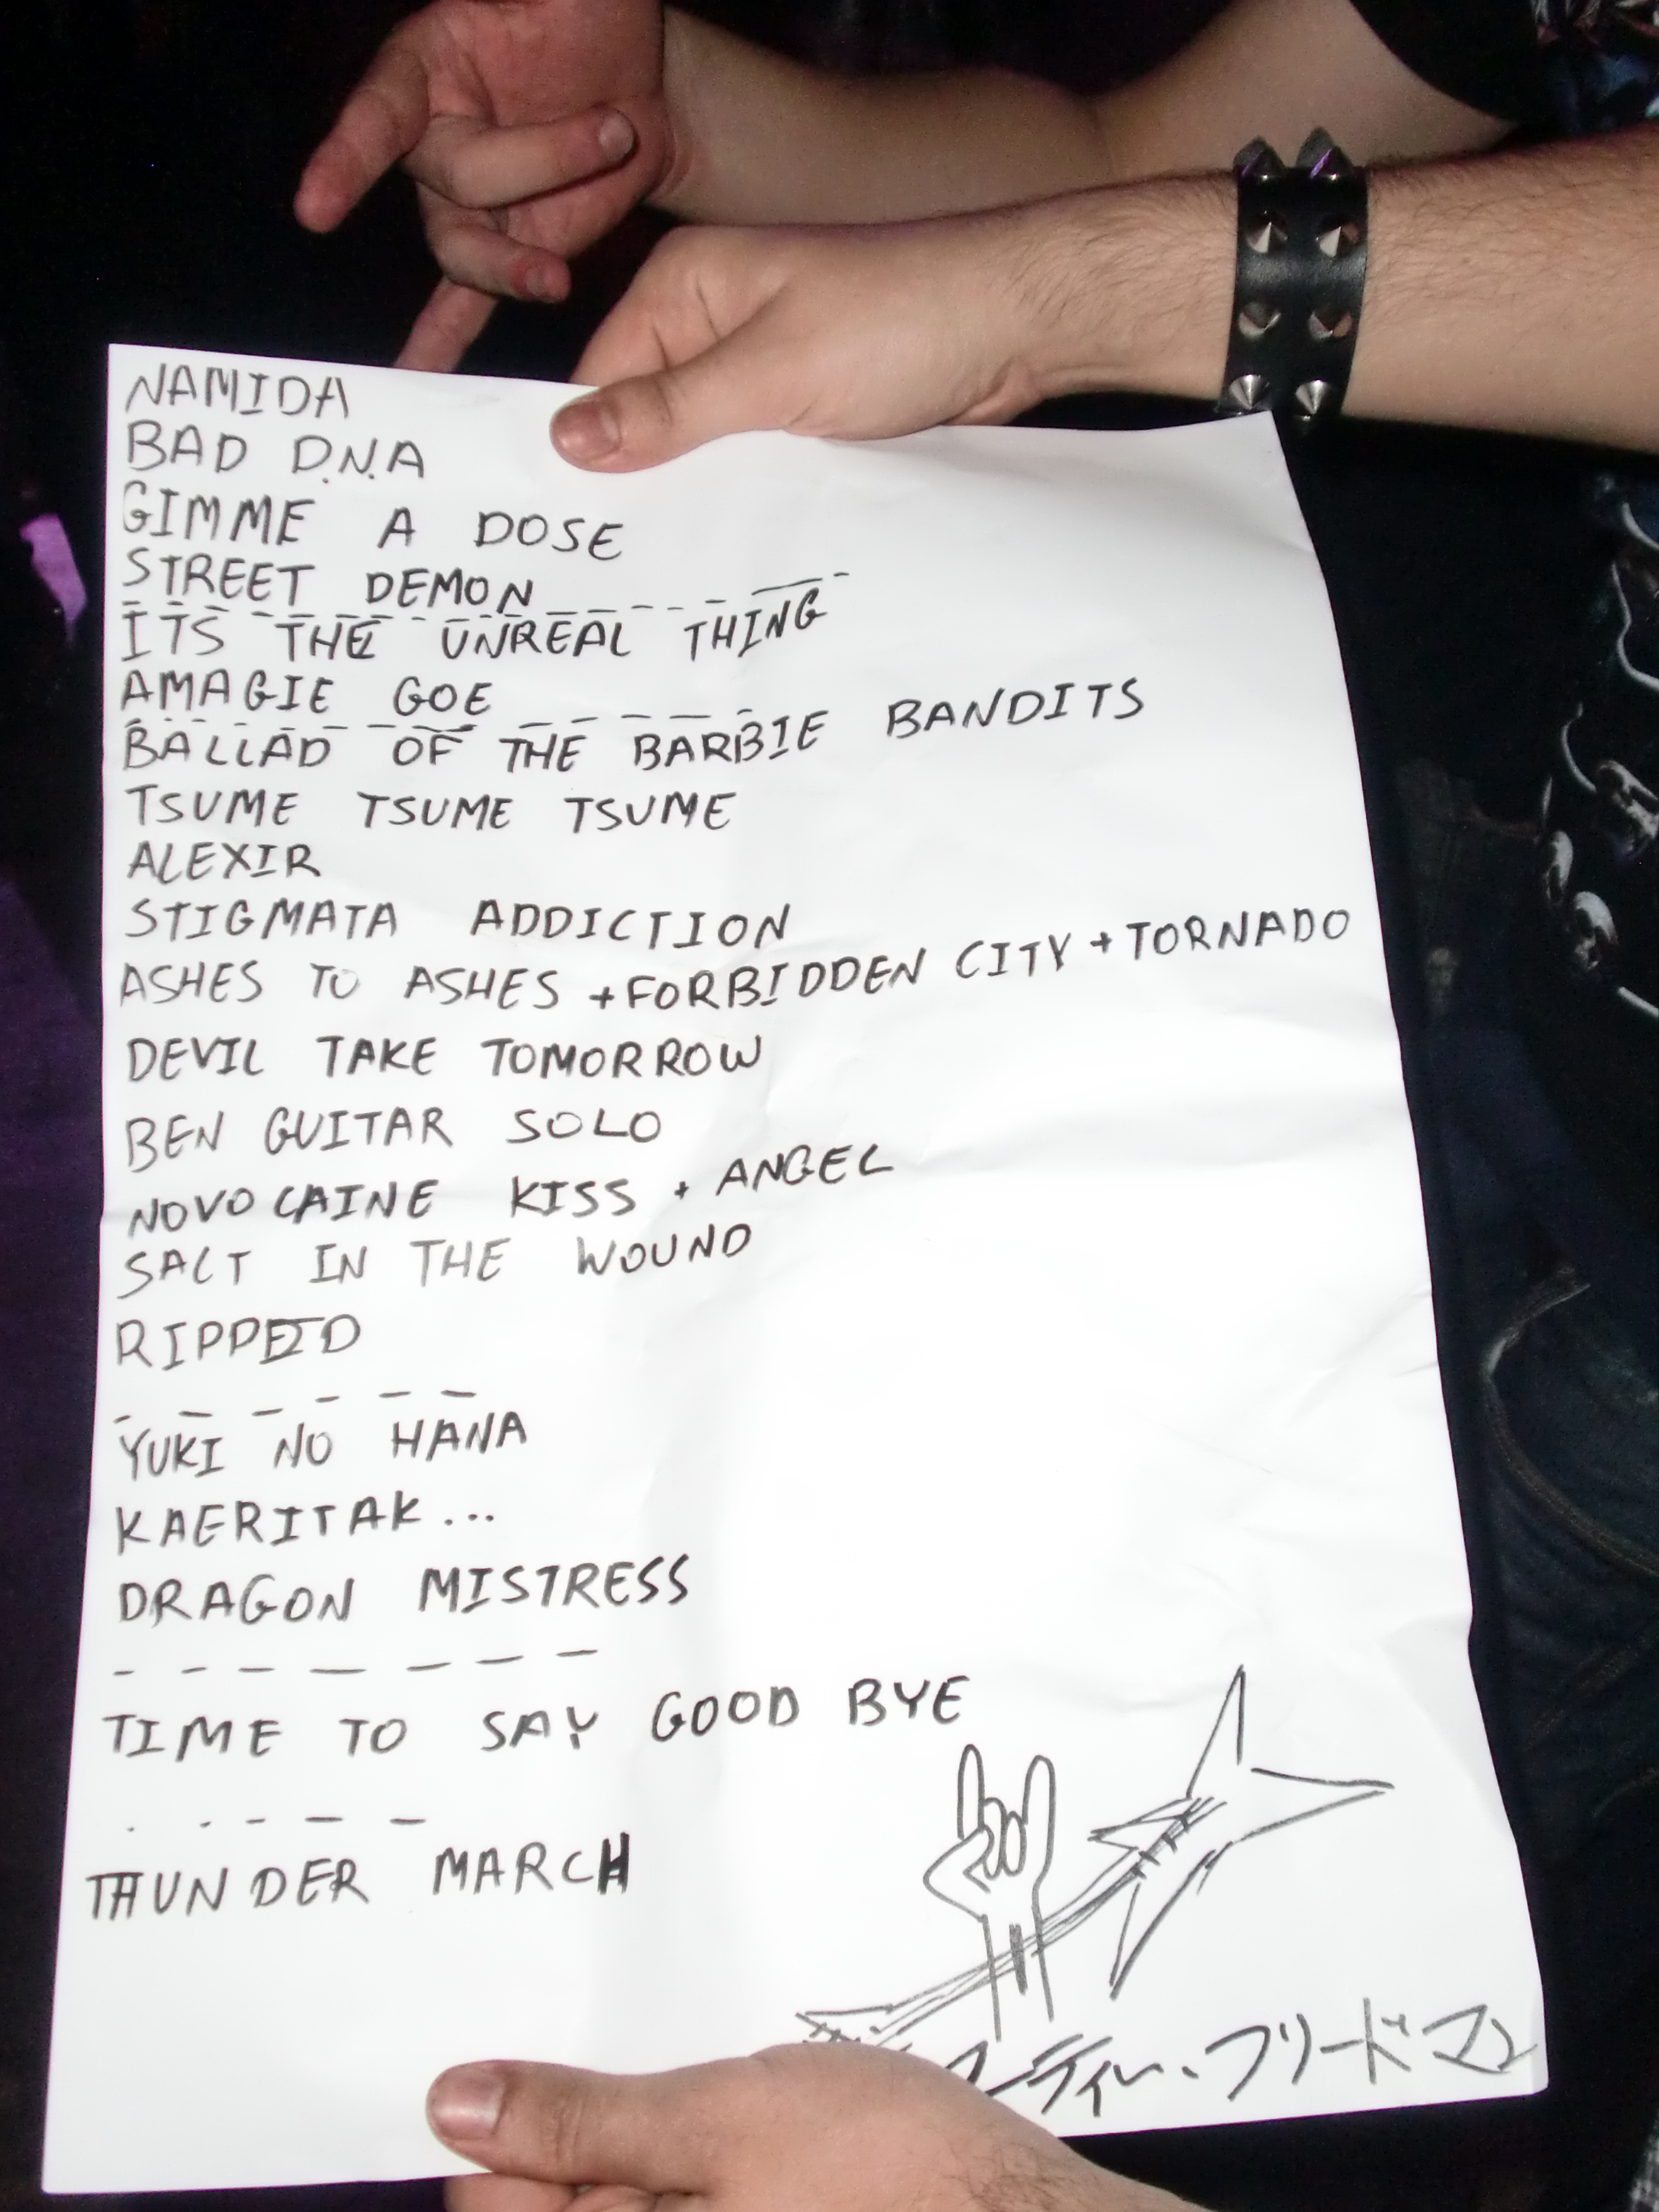 NAMIDA
BAD D.N.A
GIMME A DOSE
STREET DEMON
ITS THE UNREAL THING
AMAGIE GOE
BALLAD OF THE BARBIE BANDITS
TSUME TSUME TSUME
ALEXIR
STIGMATA ADDICTION
ASHES TO ASHES + FORBIDDEN CITY + TORNADO
DEVIL TAKE TOMORROW
BEN GUITAR SOLO
NOVOCAINE KISS + ANGEL
SALT IN THE WOUND
RIPPED
YUKI NO HANA
KAERITAK...
DRAGON MISTRESS
TIME TO SAY GOOD BYE
THUNDER MARCH
マーティー・フリードマン